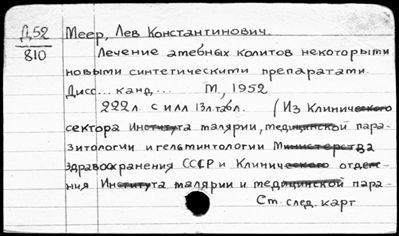 Д52 Меер, Лев Константинович.
810
Лечение амебных колитов некоторыми
новыми синтетическими препаратами.
Дисс... канд... М, 1952
222л. с илл 13л.табл. (Из Клинического
сектора Института малярии, медицинской пара-
зитологии и гельминтологии Министерства
здравоохранения СССР и Клиническо отделе-
ния Института малярии и медицинской пара-
См. след. карт